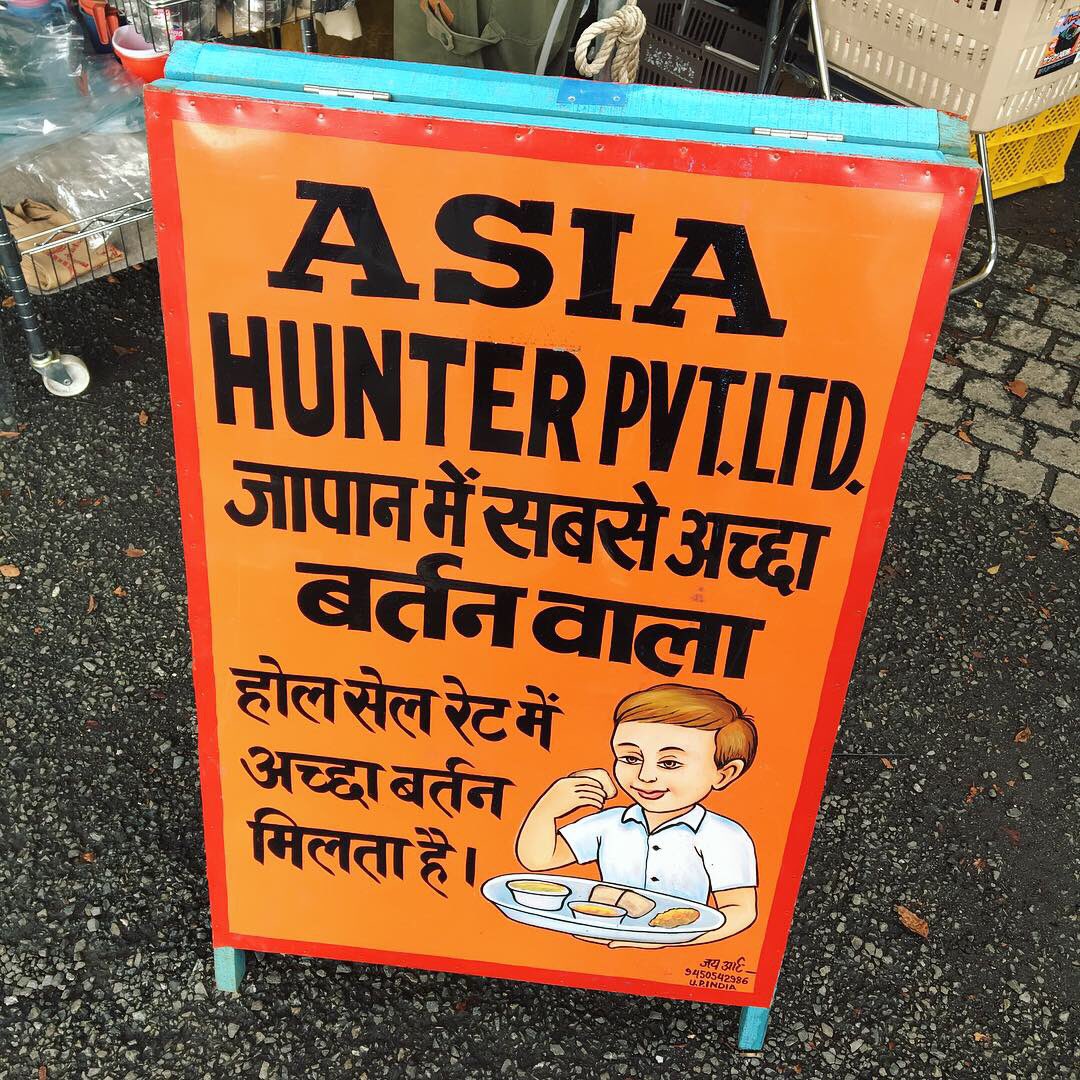 ASIA
HUNTER PVT.LTD.
जापान में सबसे अच्छा
बर्तन वाला
होल सेल रेट में
अच्छा बर्तन
मिलता है।
जय आर्ट
9450542986
U.P.INDIA